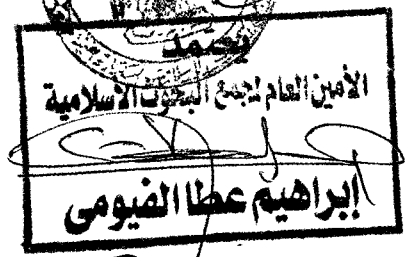 يعتمد
الأمين العام لمجمع البحوث الاسلامية
إبراهيم عطا الفيومى